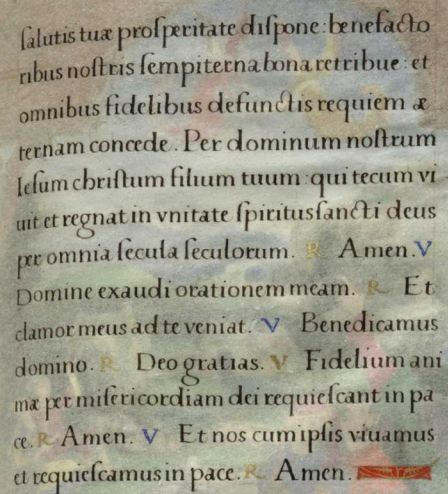 salutis tuæ prosperitate dispone: benefacto
ribus nostris sempiterna bona retribue: et
omnibus fidelibus defunctis requiem æ
ternam concede. Per dominum nostrum
Iesum christum filium tuum: qui tecum vi
uit et regnat in vnitate spiritus sancti deus
per omnia secula seculorum. R Amen. V
Domine exaudi orationem meam. R Et
clamor meus ad te veniat. V Benedicamus
domino. R Deo gratias. V Fidelium ani
mæ per misericordiam dei requiescant in pa
ce. R Amen. V Et nos cum ipsis viuamus
et requiescamus in pace. R Amen.